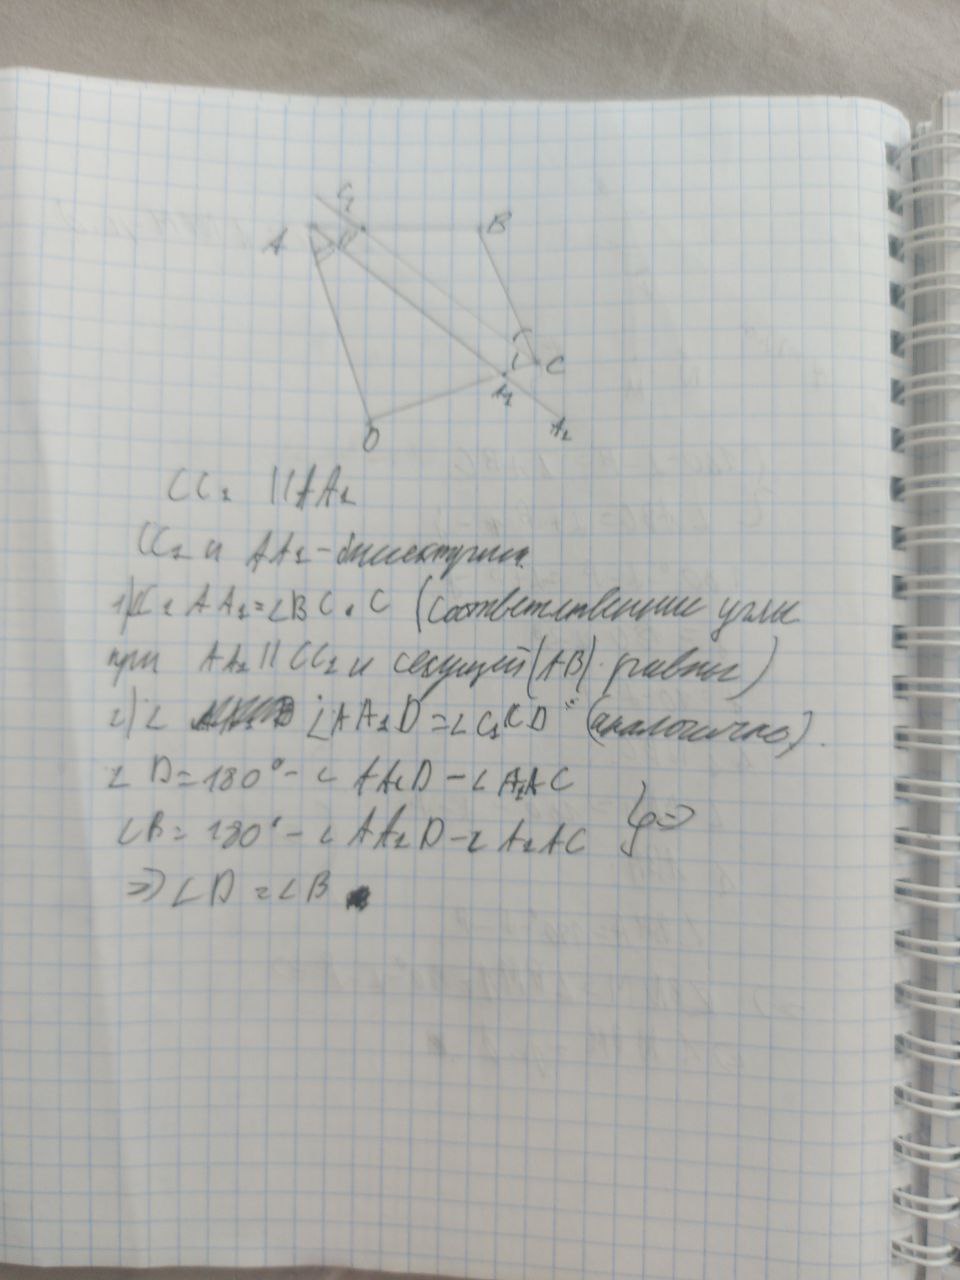 C₁
A
B
C
M
D
A₂
CC₂ || AA₂
CC₂ и AA₂ - биссектрисы.
AA₂ = ∠BC₁C (соответственные углы
при AA₂ || CC₂ и секущей (AB) равны)
2) ∠ ∠AA₂D = ∠C₂CD (аналогично).
∠D = 180° - ∠AA₂D - ∠A₂AC
∠B = 180° - ∠AA₂D - ∠A₂AC } =>
=> ∠D = ∠B